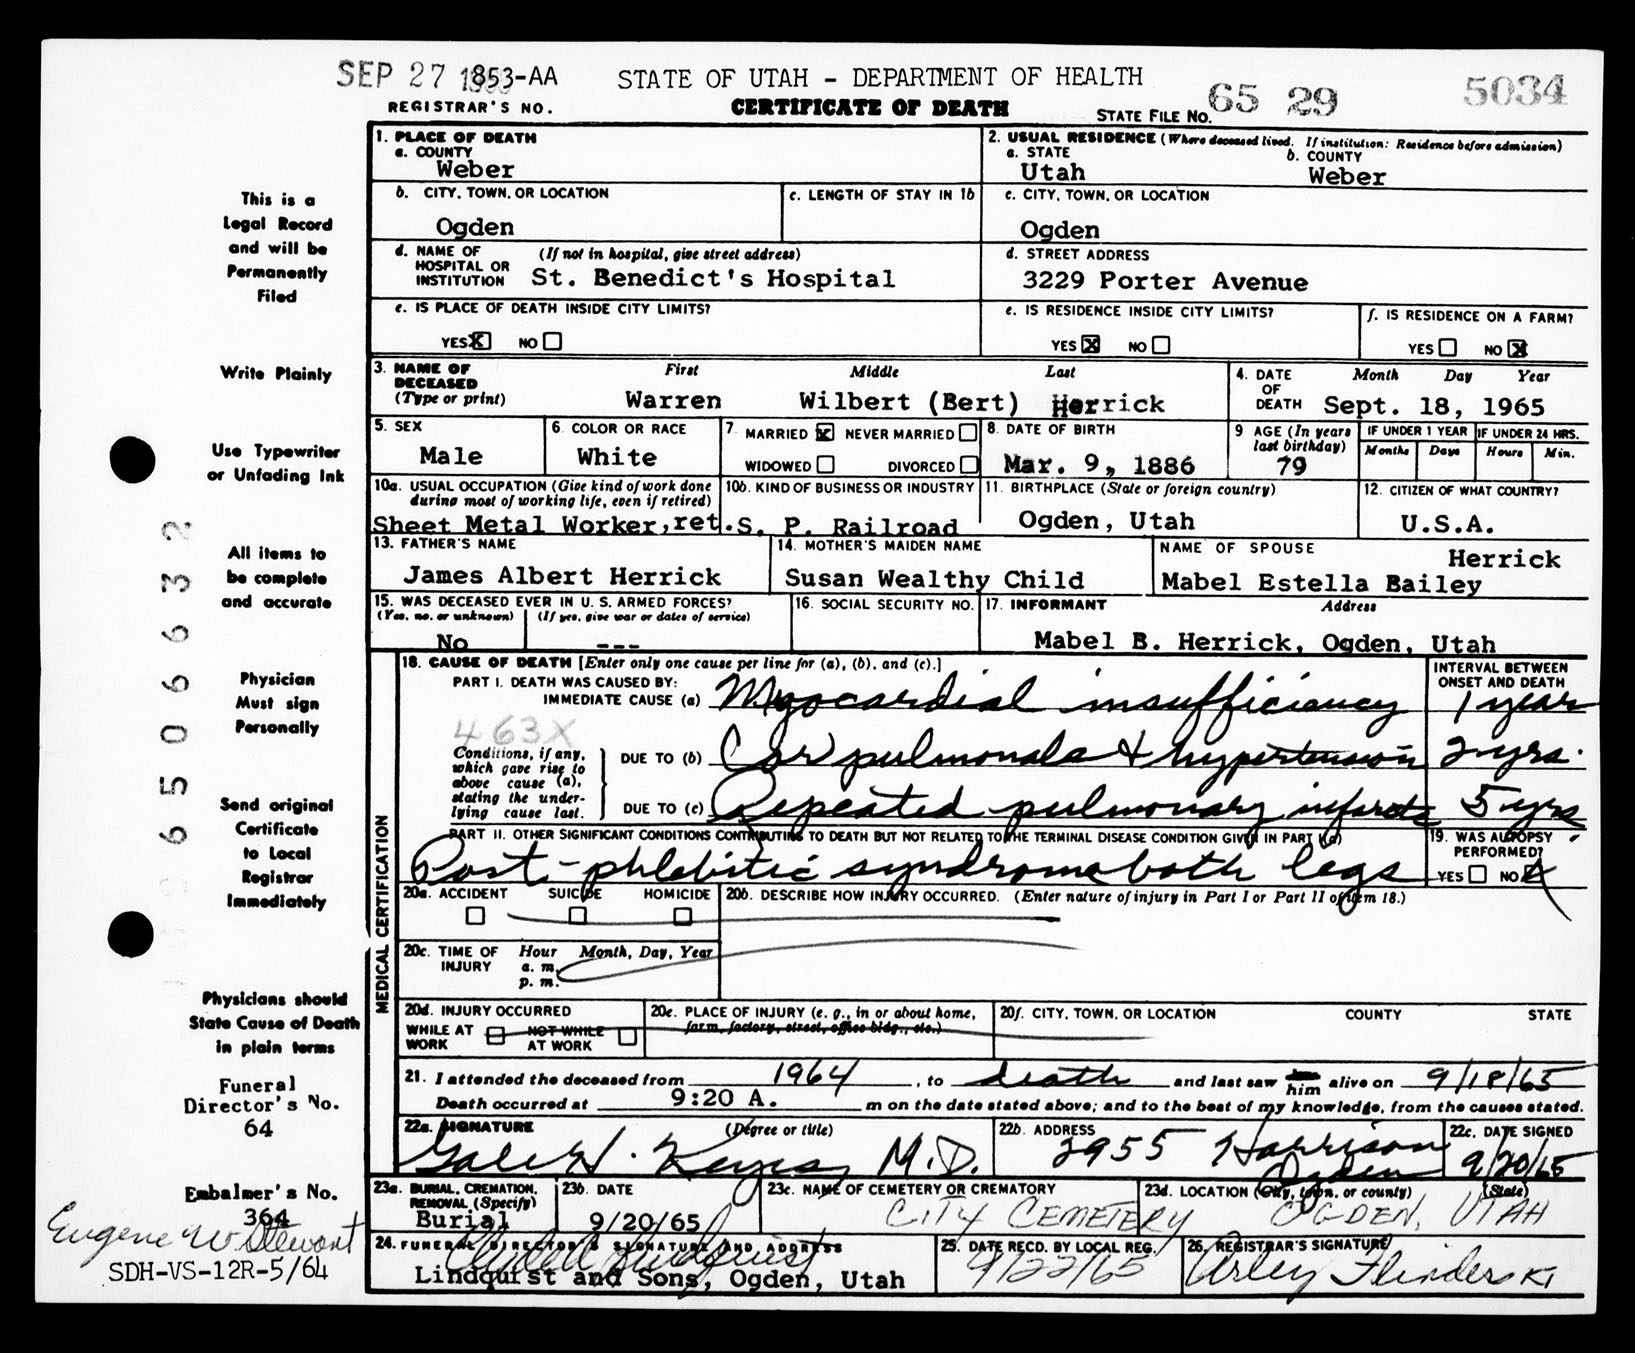 SEP 27 1853-AA STATE OF UTAH - DEPARTMENT OF HEALTH
REGISTRAR'S NO. CERTIFICATE OF DEATH STATE FILE NO. 65 29 5034
This is a
Legal Record
and will be
Permanently
Filed
Write Plainly
Use Typewriter
or Unfading Ink
All items to
be complete
and accurate
Physician
Must sign
Personally
Send original
Certificate
to Local
Registrar
Immediately
Physicians should
State Cause of Death
in plain terms
Funeral
Director's No.
64
Embalmer's No.
364
Eugene W Stewart
SDH-VS-12R-5/64
6506632
1. PLACE OF DEATH
a. COUNTY
Weber
2. USUAL RESIDENCE (Where deceased lived. If institution: Residence before admission)
a. STATE b. COUNTY
Utah Weber
b. CITY, TOWN, OR LOCATION
Ogden
c. LENGTH OF STAY IN 1b
c. CITY, TOWN, OR LOCATION
Ogden
d. NAME OF (If not in hospital, give street address)
HOSPITAL OR
INSTITUTION St. Benedict's Hospital
d. STREET ADDRESS
3229 Porter Avenue
e. IS PLACE OF DEATH INSIDE CITY LIMITS?
YES X NO
e. IS RESIDENCE INSIDE CITY LIMITS?
YES X NO
f. IS RESIDENCE ON A FARM?
YES NO X
3. NAME OF First Middle Last
DECEASED
(Type or print) Warren Wilbert (Bert) Herrick
4. DATE Month Day Year
OF
DEATH Sept. 18, 1965
5. SEX
Male
6. COLOR OR RACE
White
7. MARRIED X NEVER MARRIED
WIDOWED DIVORCED
8. DATE OF BIRTH
Mar. 9, 1886
9 AGE (In years
last birthday)
79
IF UNDER 1 YEAR IF UNDER 24 HRS.
Months Days Hours Min.
10a. USUAL OCCUPATION (Give kind of work done
during most of working life, even if retired)
Sheet Metal Worker, ret.
10b. KIND OF BUSINESS OR INDUSTRY
S. P. Railroad
11. BIRTHPLACE (State or foreign country)
Ogden, Utah
12. CITIZEN OF WHAT COUNTRY?
U.S.A.
13. FATHER'S NAME
James Albert Herrick
14. MOTHER'S MAIDEN NAME
Susan Wealthy Child
NAME OF SPOUSE Herrick
Mabel Estella Bailey
15. WAS DECEASED EVER IN U. S. ARMED FORCES?
(Yes, no, or unknown) (If yes, give war or dates of service)
No ---
16. SOCIAL SECURITY NO.
17. INFORMANT Address
Mabel B. Herrick, Ogden, Utah
MEDICAL CERTIFICATION
18. CAUSE OF DEATH [Enter only one cause per line for (a), (b), and (c).]
INTERVAL BETWEEN
ONSET AND DEATH
PART I. DEATH WAS CAUSED BY:
IMMEDIATE CAUSE (a) Myocardial insufficiency 1 year
463X
Conditions, if any,
which gave rise to
above cause (a),
stating the under-
lying cause last.
DUE TO (b) Cor pulmonale & hypertension 2 yrs.
DUE TO (c) Repeated pulmonary infarcts 5 yrs.
PART II. OTHER SIGNIFICANT CONDITIONS CONTRIBUTING TO DEATH BUT NOT RELATED TO THE TERMINAL DISEASE CONDITION GIVEN IN PART I(a)
Post-phlebitic syndrome both legs
19. WAS AUTOPSY
PERFORMED?
YES NO X
20a. ACCIDENT SUICIDE HOMICIDE
20b. DESCRIBE HOW INJURY OCCURRED. (Enter nature of injury in Part I or Part II of item 18.)
20c. TIME OF Hour Month, Day, Year
INJURY a. m.
p. m.
20d. INJURY OCCURRED
WHILE AT NOT WHILE
WORK AT WORK
20e. PLACE OF INJURY (e. g., in or about home,
farm, factory, street, office bldg., etc.)
20f. CITY, TOWN, OR LOCATION COUNTY STATE
21. I attended the deceased from 1964, to death and last saw him alive on 9/18/65
Death occurred at 9:20 A. m on the date stated above; and to the best of my knowledge, from the causes stated.
22a. SIGNATURE (Degree or title)
Gale H. Keyes, M.D.
22b. ADDRESS
2955 Harrison
Ogden
22c. DATE SIGNED
9/20/65
23a. BURIAL, CREMATION,
REMOVAL (Specify)
Burial
23b. DATE
9/20/65
23c. NAME OF CEMETERY OR CREMATORY
CITY CEMETERY
23d. LOCATION (City, town, or county) (State)
OGDEN, UTAH
24. FUNERAL DIRECTOR'S SIGNATURE AND ADDRESS
Lindquist and Sons, Ogden, Utah
25. DATE RECD. BY LOCAL REG.
9/22/65
26. REGISTRAR'S SIGNATURE
Arley Flinders